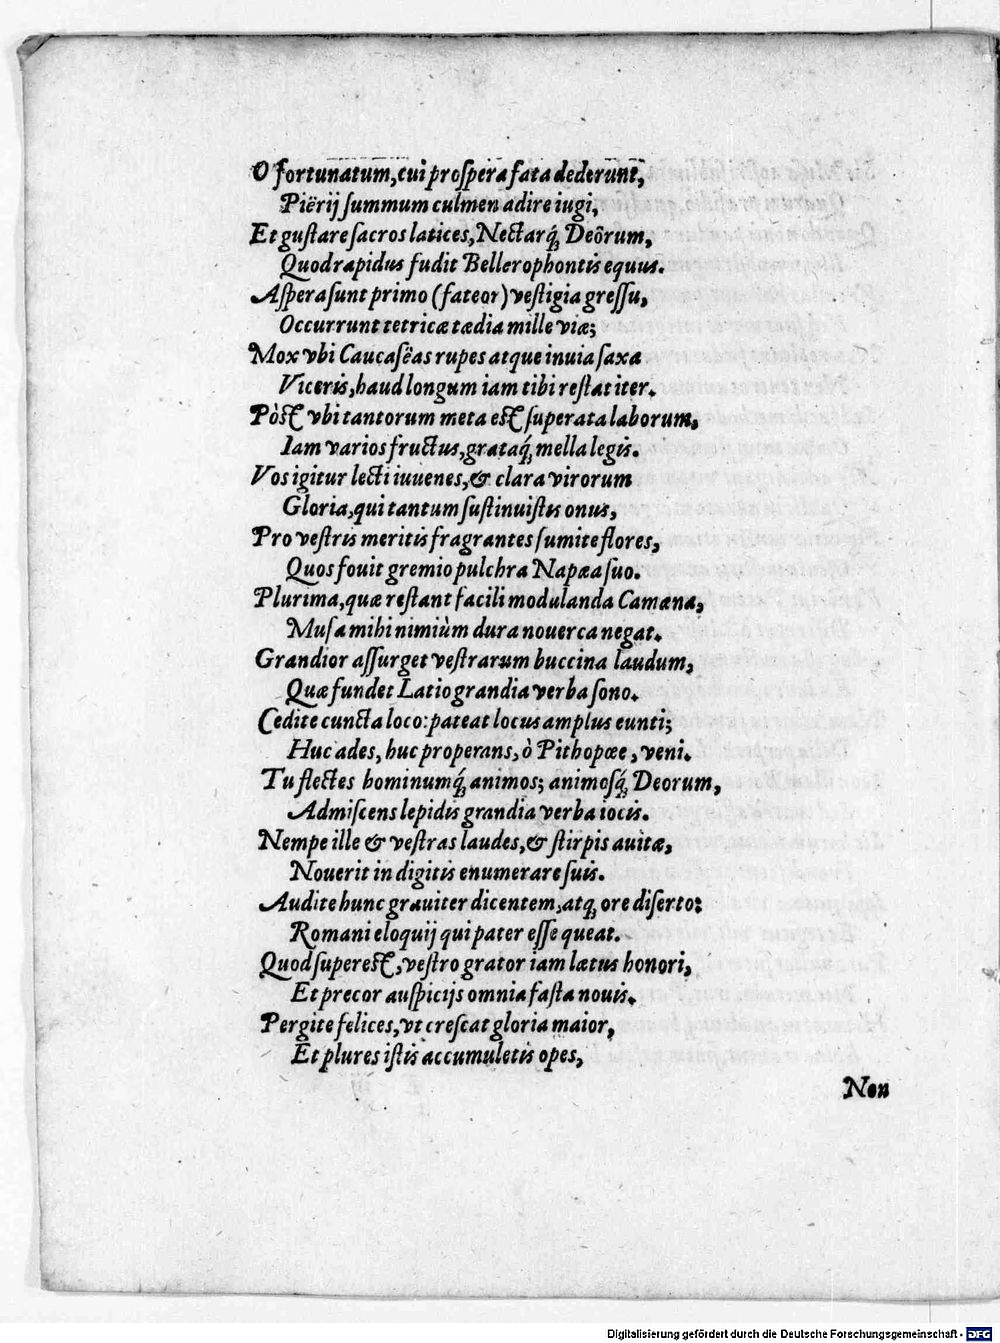 O fortunatum, cui proſpera fata dederunt,
Piërij ſummum culmen adire iugi,
Et guſtare ſacros latices, Nectarq́; Deôrum,
Quod rapidus fudit Bellerophontis equus.
Aſpera ſunt primo (fateor) veſtigia greſſu,
Occurrunt tetricæ tædia mille viæ;
Mox vbi Caucaſëas rupes atque inuia ſaxa
Viceris, haud longum iam tibi reſtat iter.
Pòſt vbi tantorum meta eſt ſuperata laborum,
Iam varios fructus, grataq́; mella legis.
Vos igitur lecti iuuenes, & clara virorum
Gloria, qui tantum ſuſtinuiſtis onus,
Pro veſtris meritis fragrantes ſumite flores,
Quos fouit gremio pulchra Napæa ſuo.
Plurima, quæ reſtant facili modulanda Camæna,
Muſa mihi nimiùm dura nouerca negat.
Grandior aſſurget veſtrarum buccina laudum,
Quæ fundet Latio grandia verba ſono.
Cedite cuncta loco: pateat locus amplus eunti;
Huc ades, huc properans, ò Pithopœe, veni.
Tu flectes hominumq́; animos; animoſq́; Deorum,
Admiſcens lepidis grandia verba iocis.
Nempe ille & veſtras laudes, & ſtirpis auitæ,
Nouerit in digitis enumerare ſuis.
Audite hunc grauiter dicentem, atq; ore diſerto:
Romani eloquij qui pater eſſe queat.
Quod ſupereſt, veſtro grator iam lætus honori,
Et precor auſpicijs omnia faſta nouis.
Pergite felices, vt creſcat gloria maior,
Et plures iſtis accumuletis opes,
Non
Digitalisierung gefördert durch die Deutsche Forschungsgemeinschaft - DFG